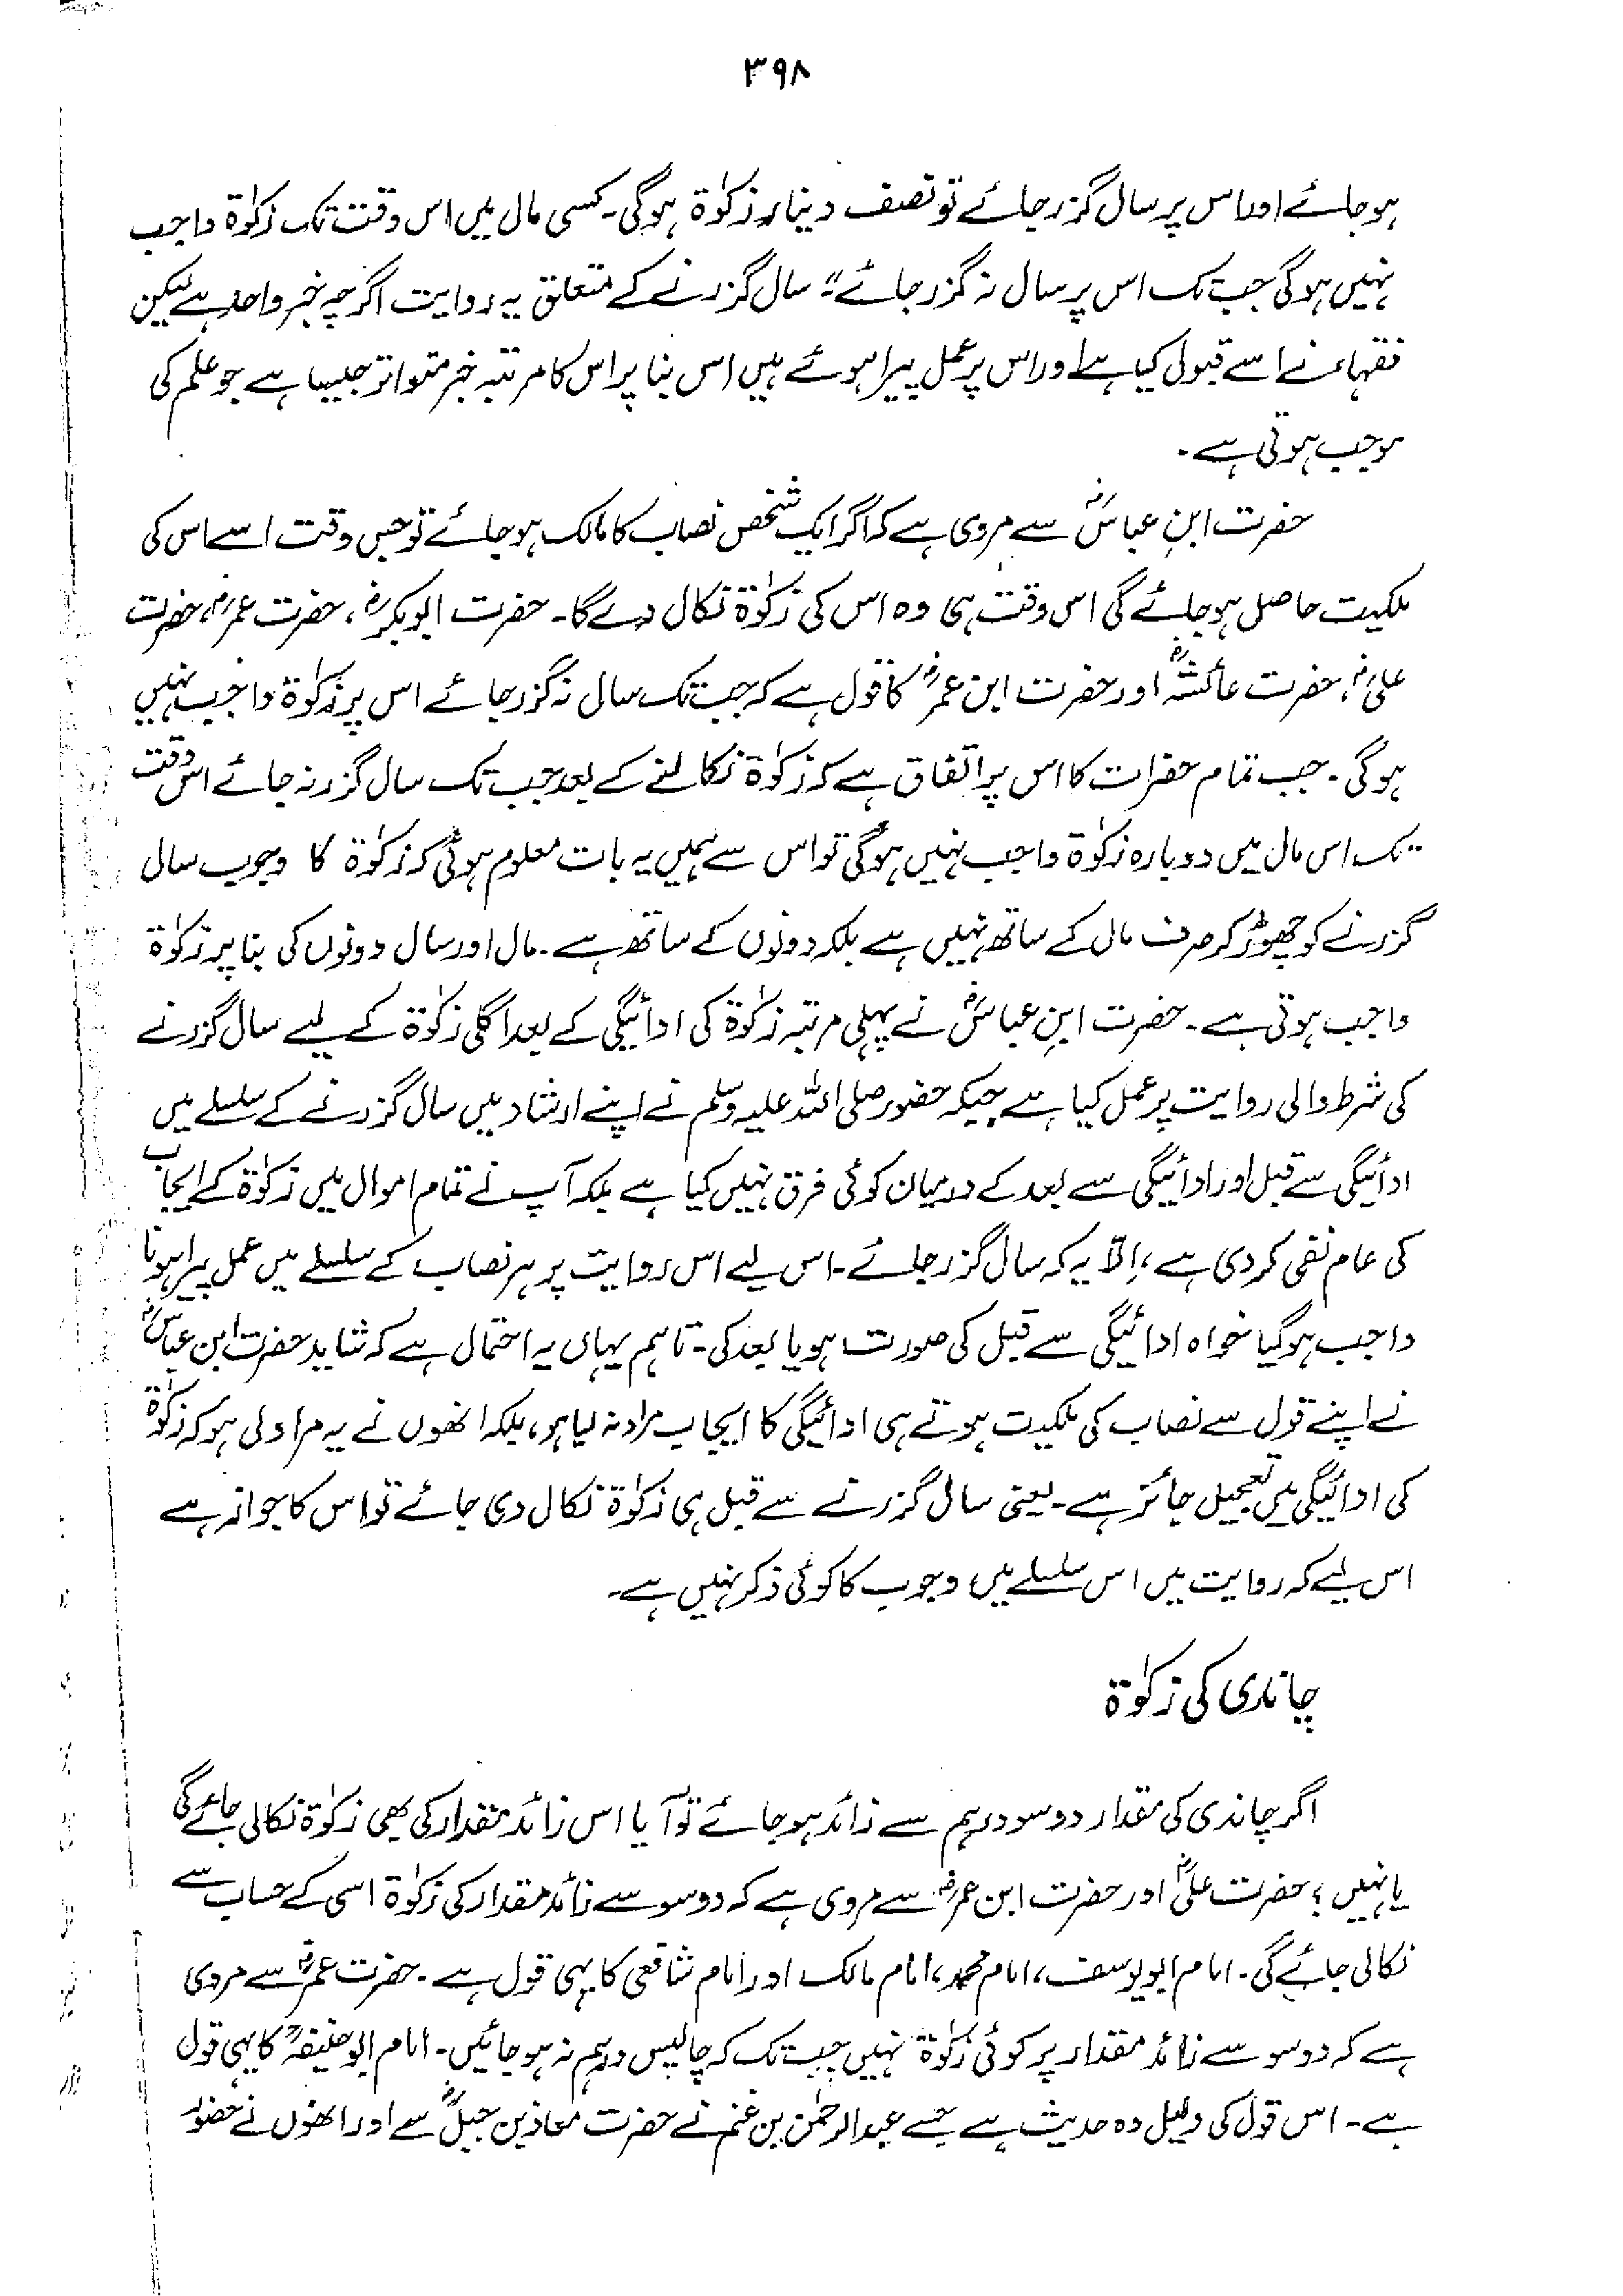 ۳۹۸
ہو جائے اور اس پر سال گزر جائے تو نصف دینار زکوٰۃ ہوگی۔ کسی مال میں اس وقت تک زکوٰۃ واجب
نہیں ہوگی جب تک اس پر سال نہ گزر جائے"۔ سال گزرنے کے متعلق یہ روایت اگرچہ خبر واحد ہے لیکن
فقہاء نے اسے قبول کیا ہے اور اس پر عمل پیرا ہوئے ہیں اس بنا پر اس کا مرتبہ خبر متواتر جیسا ہے جو علم کی
موجب ہوتی ہے۔
حضرت ابنِ عباسؓ سے مروی ہے کہ اگر ایک شخص نصاب کا مالک ہو جائے تو جس وقت اسے اس کی
ملکیت حاصل ہو جائے گی اس وقت ہی وہ اس کی زکوٰۃ نکال دے گا۔ حضرت ابوبکرؓ، حضرت عمرؓ، حضرت
علیؓ، حضرت عائشہؓ اور حضرت ابن عمرؓ کا قول ہے کہ جب تک سال نہ گزر جائے اس پر زکوٰۃ واجب نہیں
ہوگی۔ جب تمام حضرات کا اس پر اتفاق ہے کہ زکوٰۃ نکالنے کے بعد جب تک سال گزر نہ جائے اس وقت
تک اس مال میں دوبارہ زکوٰۃ واجب نہیں ہوگی تو اس سے ہمیں یہ بات معلوم ہوئی کہ زکوٰۃ کا وجوب سال
گزرنے کو چھوڑ کر صرف مال کے ساتھ نہیں ہے بلکہ دونوں کے ساتھ ہے۔ مال اور سال دونوں کی بنا پر زکوٰۃ
واجب ہوتی ہے۔ حضرت ابنِ عباسؓ نے پہلی مرتبہ زکوٰۃ کی ادائیگی کے بعد اگلی زکوٰۃ کے لیے سال گزرنے
کی شرط والی روایت پر عمل کیا ہے جبکہ حضور صلی اللہ علیہ وسلم نے اپنے ارشاد میں سال گزرنے کے سلسلے میں
ادائیگی سے قبل اور ادائیگی سے بعد کے درمیان کوئی فرق نہیں کیا ہے بلکہ آپ نے تمام اموال میں زکوٰۃ کے ایجاب
کی عام نفی کر دی ہے، اِلّا یہ کہ سال گزر جائے۔ اس لیے اس روایت پر ہر نصاب کے سلسلے میں عمل پیرا ہونا
واجب ہوگیا خواہ ادائیگی سے قبل کی صورت ہو یا بعد کی۔ تاہم یہاں یہ احتمال ہے کہ شاید حضرت ابن عباسؓ
نے اپنے قول سے نصاب کی ملکیت ہوتے ہی ادائیگی کا ایجاب مراد نہ لیا ہو، بلکہ انھوں نے یہ مراد لی ہو کہ زکوٰۃ
کی ادائیگی میں تعجیل جائز ہے۔ یعنی سال گزرنے سے قبل ہی زکوٰۃ نکال دی جائے تو اس کا جواز ہے
اس لیے کہ روایت میں اس سلسلے میں وجوب کا کوئی ذکر نہیں ہے۔
چاندی کی زکوٰۃ
اگر چاندی کی مقدار دو سو درہم سے زائد ہو جائے تو آیا اس زائد مقدار کی بھی زکوٰۃ نکالی جائے گی
یا نہیں؟ حضرت علیؓ اور حضرت ابن عمرؓ سے مروی ہے کہ دو سو سے زائد مقدار کی زکوٰۃ اسی کے حساب سے
نکالی جائے گی۔ امام ابو یوسف، امام محمد، امام مالک اور امام شافعی کا یہی قول ہے۔ حضرت عمرؓ سے مروی
ہے کہ دو سو سے زائد مقدار پر کوئی زکوٰۃ نہیں جب تک کہ چالیس درہم نہ ہو جائیں۔ امام ابو حنیفہؒ کا یہی قول
ہے۔ اس قول کی دلیل وہ حدیث ہے جسے عبدالرحمٰن بن غنم نے حضرت معاذ بن جبلؓ سے اور انھوں نے حضورؐ